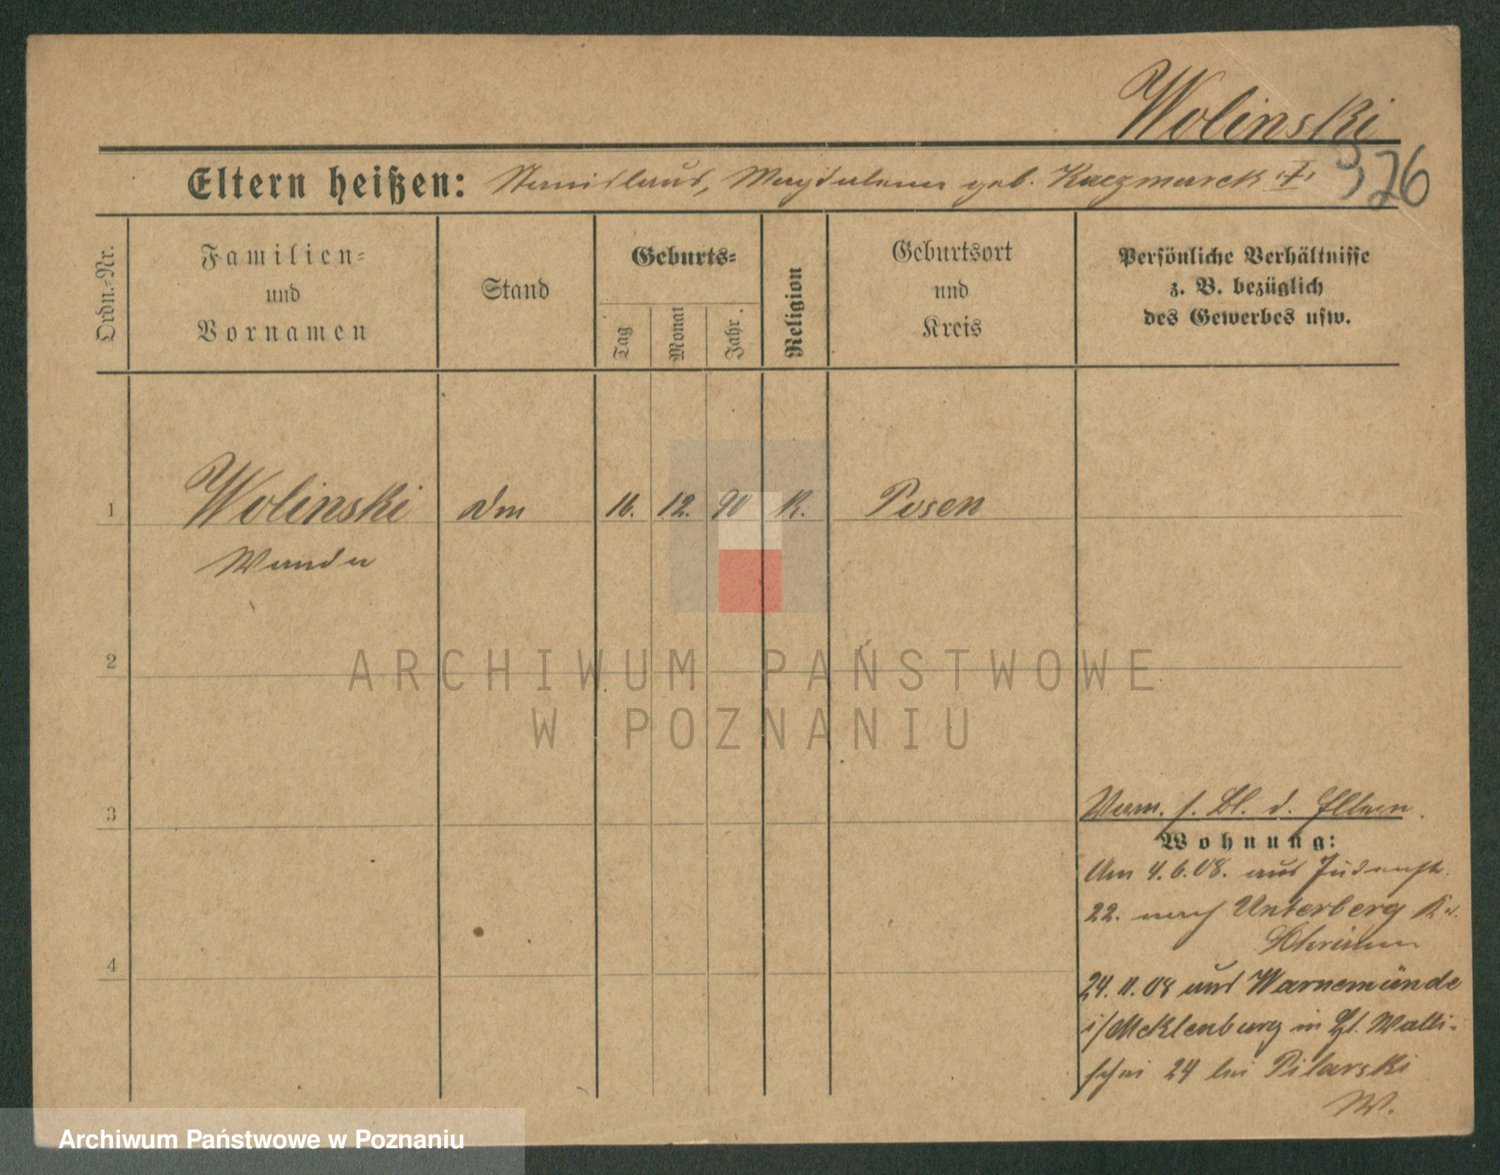 Wolinski
326
Eltern heißen: Stanislaus, Magdalena geb. Kaczmarek
Ordn.-Nr.
Familien-
und
Vornamen
Stand
Geburts-
Tag
Monat
Jahr.
Religion
Geburtsort
und
Kreis
Persönliche Verhältnisse
z. B. bezüglich
des Gewerbes usw.
1 Wolinski 16. 12. 90 K. Posen
Wanda
2
ARCHIWUM PAŃSTWOWE
W POZNANIU
3
Verm. s. Bl. d. Eltern.
Wohnung:
Am 4.6.08. aus Judenstr.
22. nach Unterberg Kr.
Schrimm
4
24. 11. 08 aus Warnemünde
i/Mecklenburg in Zl. Walli-
schei 24 bei Pilarski
W.
Archiwum Państwowe w Poznaniu